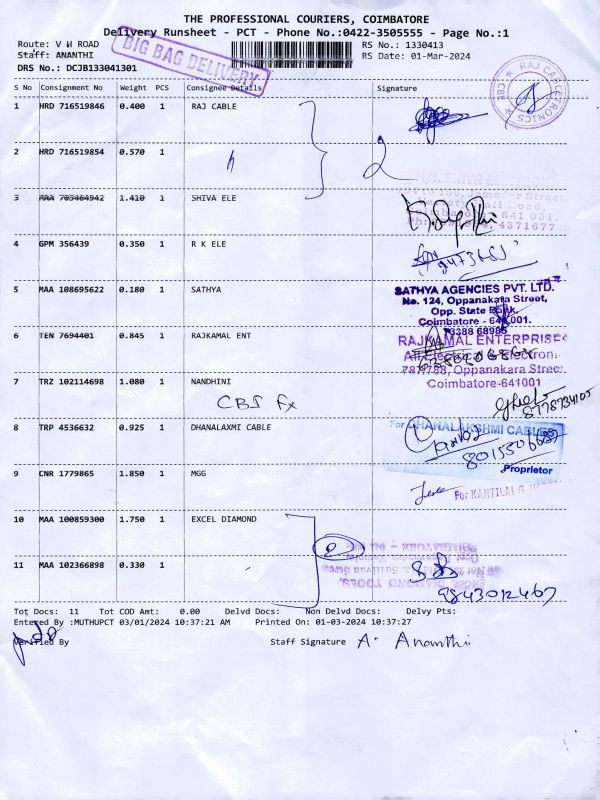 THE PROFESSIONAL COURIERS, COIMBATORE
Delivery Runsheet - PCT - Phone No.:0422-3505555 - Page No.:1
Route: V H ROAD
RS No.: 1330413
Staff: ANANTHI
RS Date: 01-Mar-2024
DRS No.: DCJB133041301
BIG BAG DELIVERY
S No Consignment No Weight PCS Consignee Details Signature
1 HRD 716519846 0.400 1 RAJ CABLE
2 HRD 716519854 0.570 1
2
3 MAA 705464942 1.410 1 SHIVA ELE
641 001.
4371677
4 GPM 356439 0.350 1 R K ELE
5 MAA 108695622 0.180 1 SATHYA
SATHYA AGENCIES PVT. LTD.
No. 124, Oppanakara Street,
Opp. State Bank,
Coimbatore - 641001.
6 TEN 7694401 0.845 1 RAJKAMAL ENT
RAJKAMAL ENTERPRISES
787/788, Oppanakara Street
Coimbatore-641001
7 TRZ 102114698 1.080 1 NANDHINI
CBS Fx
8 TRP 4536632 0.925 1 DHANALAXMI CABLE
For DHANALAKSHMI CABLES
Proprietor
9 CNR 1779865 1.850 1 MGG
For KANTILAL G
10 MAA 100859300 1.750 1 EXCEL DIAMOND
2
11 MAA 102366898 0.330 1
EXCEL DIAMOND TOOLS,
9843012467
Tot Docs: 11 Tot COD Amt: 0.00 Delvd Docs: Non Delvd Docs: Delvy Pts:
Entered By :MUTHUPCT 03/01/2024 10:37:21 AM Printed On: 01-03-2024 10:37:27
Verified By Staff Signature A. Ananthi